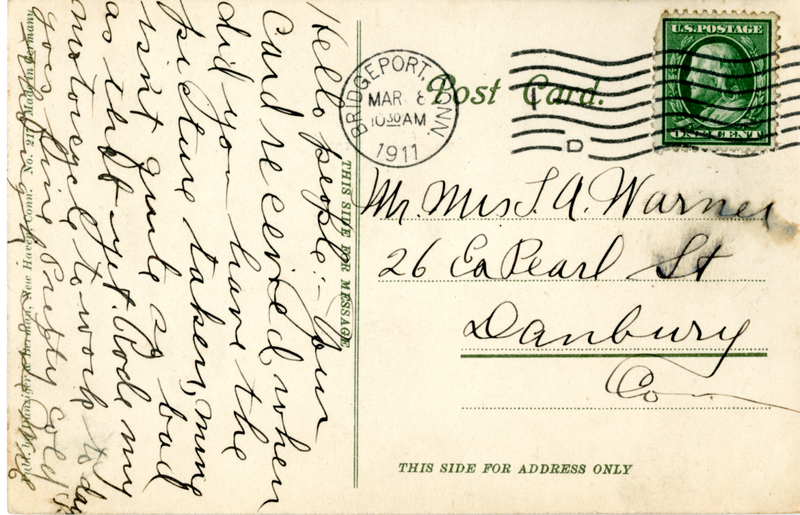 Hello people:- Your
Card received when
did you have the
picture taken, mine
isn't quite as bad
as that yet. Rode my
motorcycle to work to day
goes fine Pretty Cold
THIS SIDE FOR MESSAGE
Made in Germany.
No.
New Haven, Conn.
BRIDGEPORT, CONN.
MAR 8
10 30 AM
1911
Post Card.
D
U.S. POSTAGE
ONE CENT
Mr. Mrs. T. A. Warner
26 Ea Pearl St
Danbury
Co
THIS SIDE FOR ADDRESS ONLY